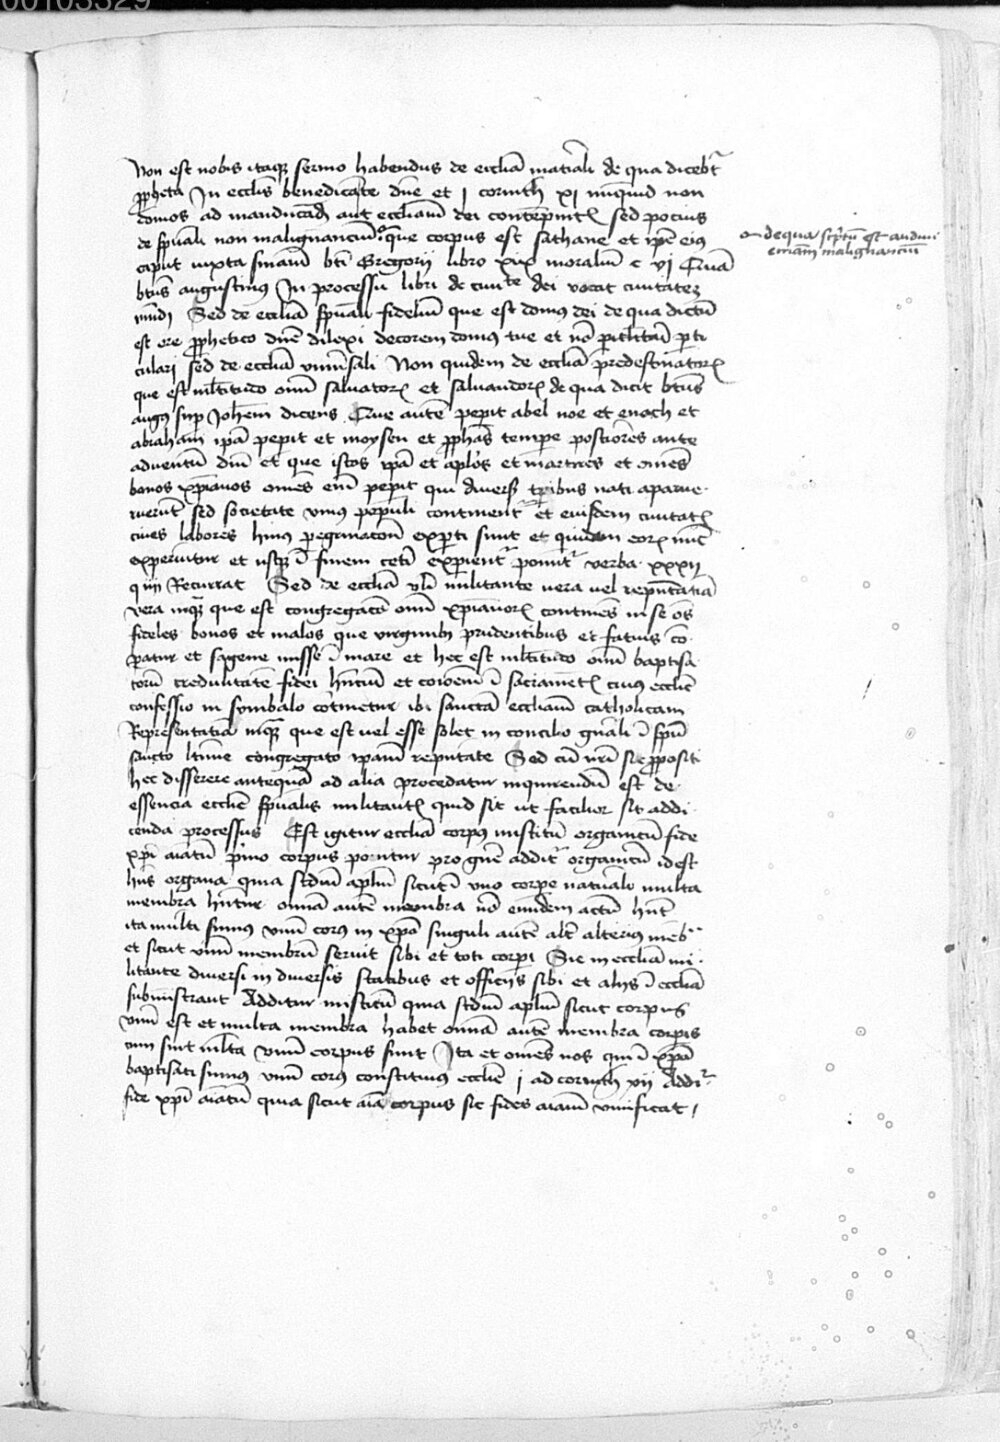 00103329
Non est nobis itaqz sermo habendus de ecclia mat̄iali de qua dicebt̄
ppheta In ecclis benedicate dno et j corinth xi nunquid non
domos ad manducad aut eccliam dei contepnit sed pocius
de spuali non malignancium que corpus est sathane et ipe eius
caput iuxta sniam bti Gregorij libro moralium c vj
btus augustinus In processu libri de ciuite dei vocat ciuitatez
mudi Sed de ecclia spuali fidelium que est domus dei de qua dictu
est ore pphetico dne dilexi decorem domus tue et no pti
culari sed de ecclia vniusali Non quidem de ecclia predestinatorz
que est mltitudo oim saluatorz et saluandorz de qua dicit btus
augus sup Johem dicens Que aute peperit abel noe et enoch et
abraham ipa peperit et moysen et pphas tempe postiores ante
aduentu dni et que istos ipa et aplos et martires et omes
bonos xpianos omes eni peperit qui diuersis tpibus nati aparue
ruerut sed societate vnius populi continent et eiusdem ciuitatz
ciues labores huius pegrinacois experti sunt et quidam eorz nuc
experiuntur et usqz i finem ceti experient ponit verba xxxij
q iiij Recurrat Sed de ecclia vli militante vera uel reputatia
vera inqz que est congregaco oim xpianorz contines in se os
fideles bonos et malos que virginibz prudentibus et fatuis co
patur et sagene misse i mare et hec est mltitudo oim baptisa
toru credulitate fidei hncium et coione i sacrametz cuius ecclie
confessio in symbalo cotinetur ibi sancta eccliam catholicam
Representatia inqz que est uel esse solet in concilio gnali i spu
sancto ltime congregato ipam reputate Sed cu nri sit ppositi
hec disserere antequa ad alia procedatur inquirendu est de
essencia ecclie spualis militantz quid sit ut facilior sit addi
cenda processus Est igitur ecclia corpus mistitu organicu fide
xpi aiatu pimo corpus ponitur pro gne additr organicu id est
hns organa quia scdm aplm sicut i vno corpe naturali multa
membra hntur omia aute membra no eundem actu hnt
ita multi sumus vnu corus in xpo singuli aute alt alterius meb
et sicut vnu membru seruit sibi et toti corpi Sic in ecclia mi
litante diuersi in diuersis statibus et officijs sibi et alijs i ecclia
subministrant Additur mistitu quia scdm aplm sicut corpus
vnu est et multa membra habet omia aute membra corpis
cum sint mlta vnu corpus sunt Ita et omes nos qui i xpo
baptisati sumus vnu corus constituius ecclie j ad corinth xij Addir
fide xpi aiatu quia sicut aia corpus sic fides aiam viuificat
de qua sciptu est audiui
ecciam malignanciu